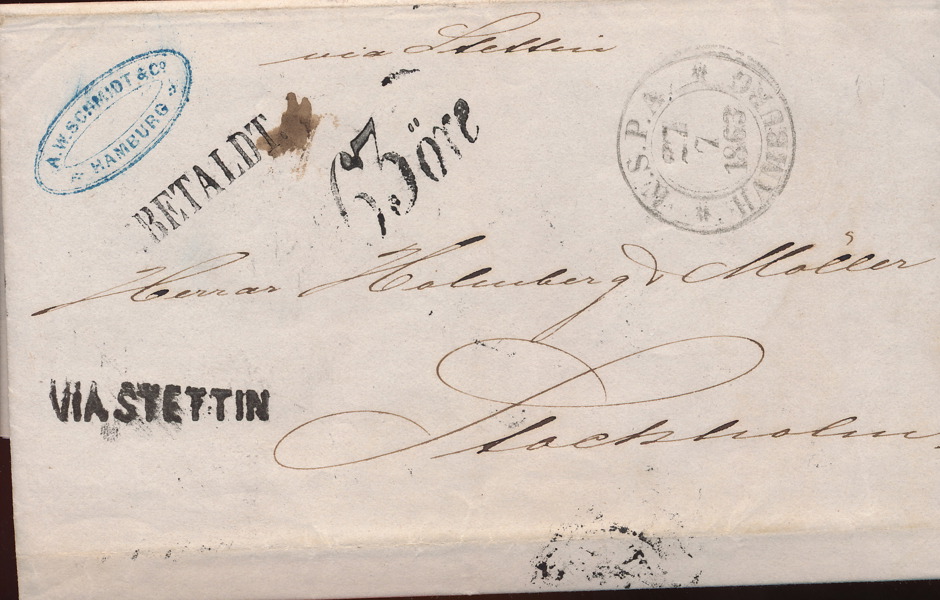 via Stettin
A.W. SCHMIDT & Co.
* HAMBURG *
BETALDT
63 öre
* K.S.P.A. * HAMBURG
27
7
1863
Herrar Holmberg & Möller
VIA STETTIN
Stockholm